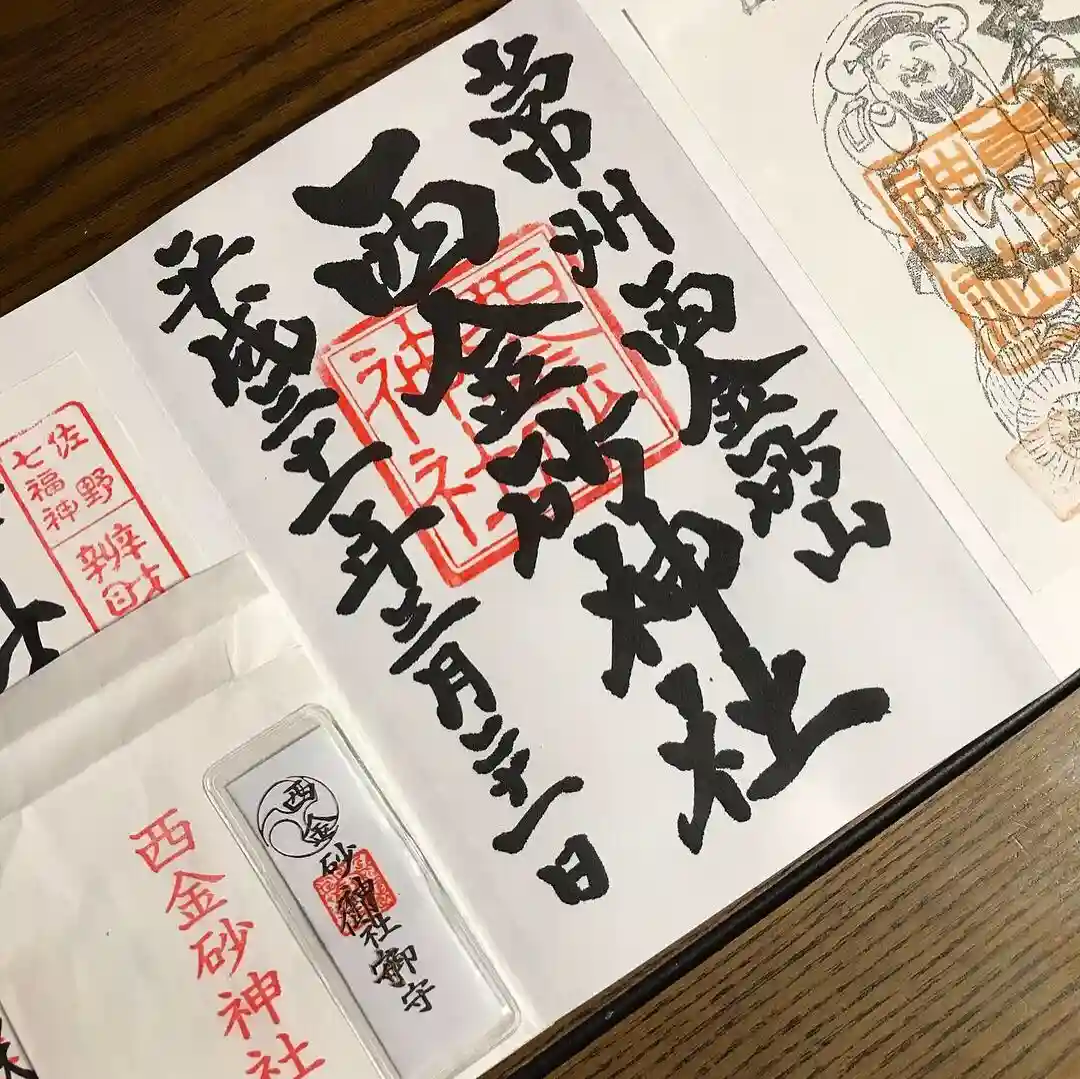 常州西金砂山
西金砂神社
平成三十一年三月二十一日
西金砂
神社
佐野
七福神
西金砂神社御守
西金砂神社